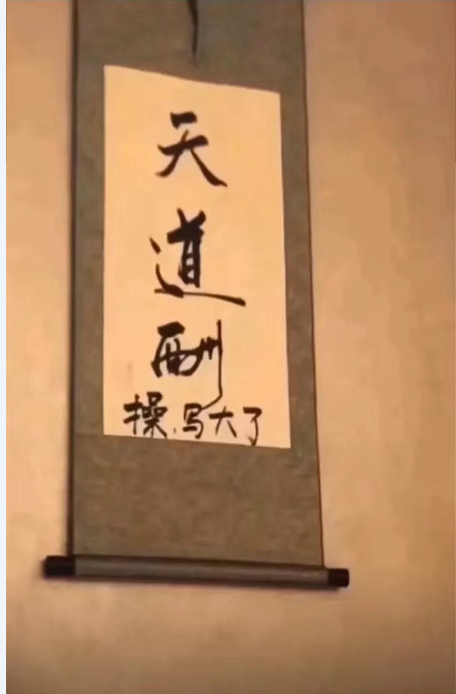 天
道
酬
操,写大了